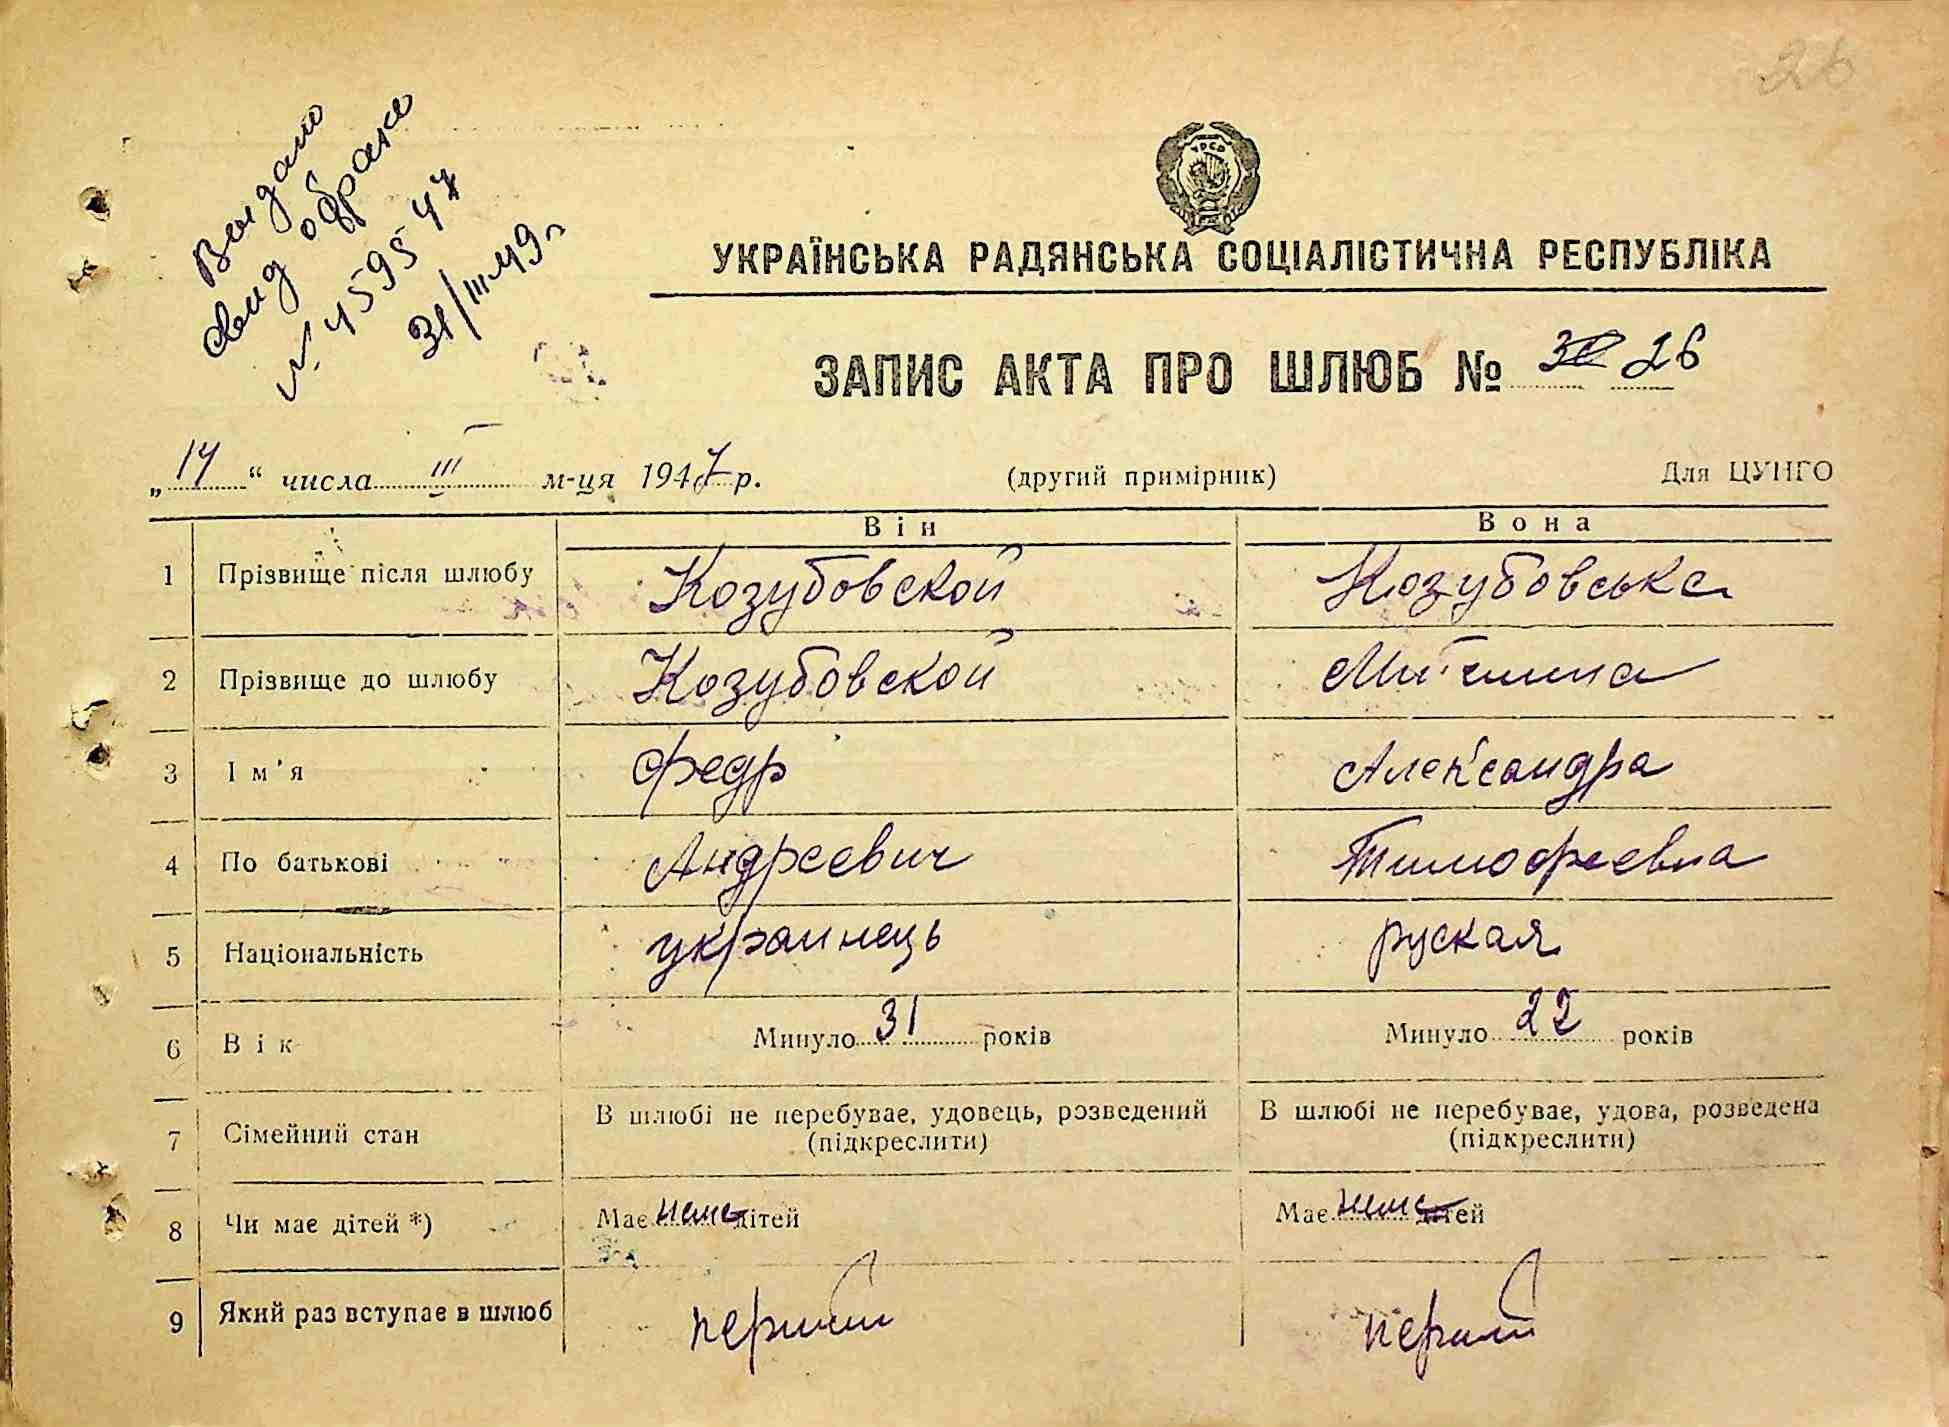 26
Выдано
свид о браке
№ 459547
31/III-49 г
УРСР
УКРАЇНСЬКА РАДЯНСЬКА СОЦІАЛІСТИЧНА РЕСПУБЛІКА
ЗАПИС АКТА ПРО ШЛЮБ № 26
„ 14 “ числа III м-ця 1947 р. (другий примірник) Для ЦУНГО
Він Вона
1 Прізвище після шлюбу Козубовской Козубовська
2 Прізвище до шлюбу Козубовской
3 Ім'я Федр Александра
4 По батькові Андреевич Тимофеевна
5 Національність украинець руская
6 Вік Минуло 31 років Минуло 22 років
7 Сімейний стан В шлюбі не перебуває, удовець, розведений (підкреслити) В шлюбі не перебуває, удова, розведена (підкреслити)
8 Чи має дітей *) Має неме дітей Має неме дітей
9 Який раз вступає в шлюб перший перший